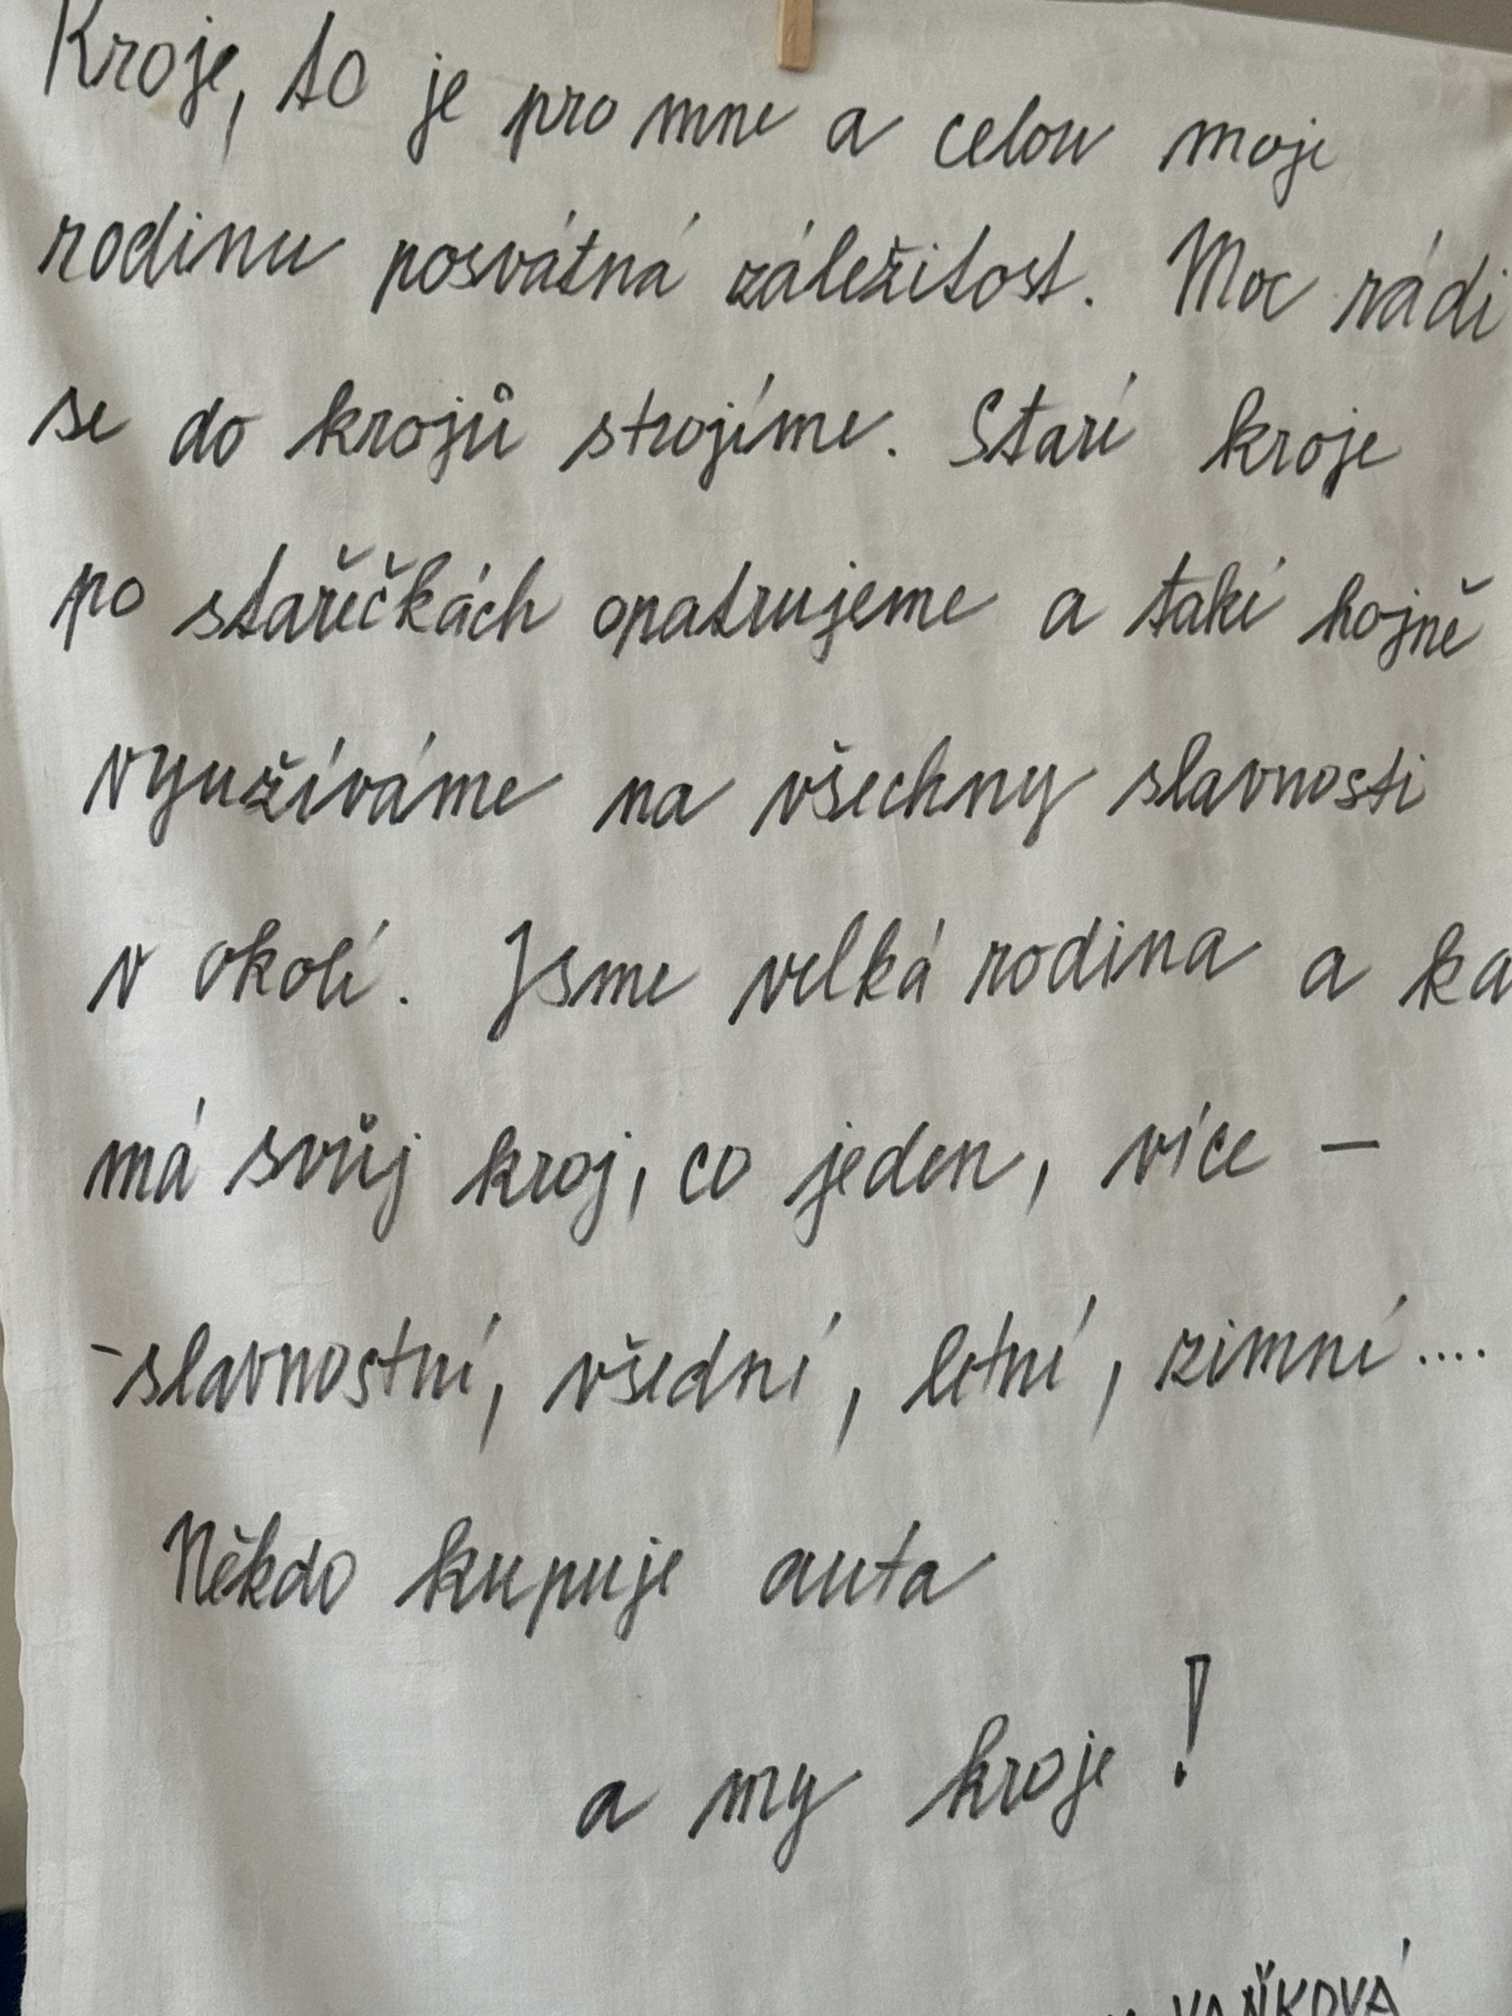 Kroje, to je pro mne a celou moje
rodinu posvátná záležitost. Moc rádi
se do krojů strojíme. Staré kroje
po stařečkách opatrujeme a také hojně
využíváme na všechny slavnosti
v okolí. Jsme velká rodina a ka
má svůj kroj, co jeden, více –
-slavnostní, všední, letní, zimní....
Někdo kupuje auta
a my kroje!
VAŇKOVÁ